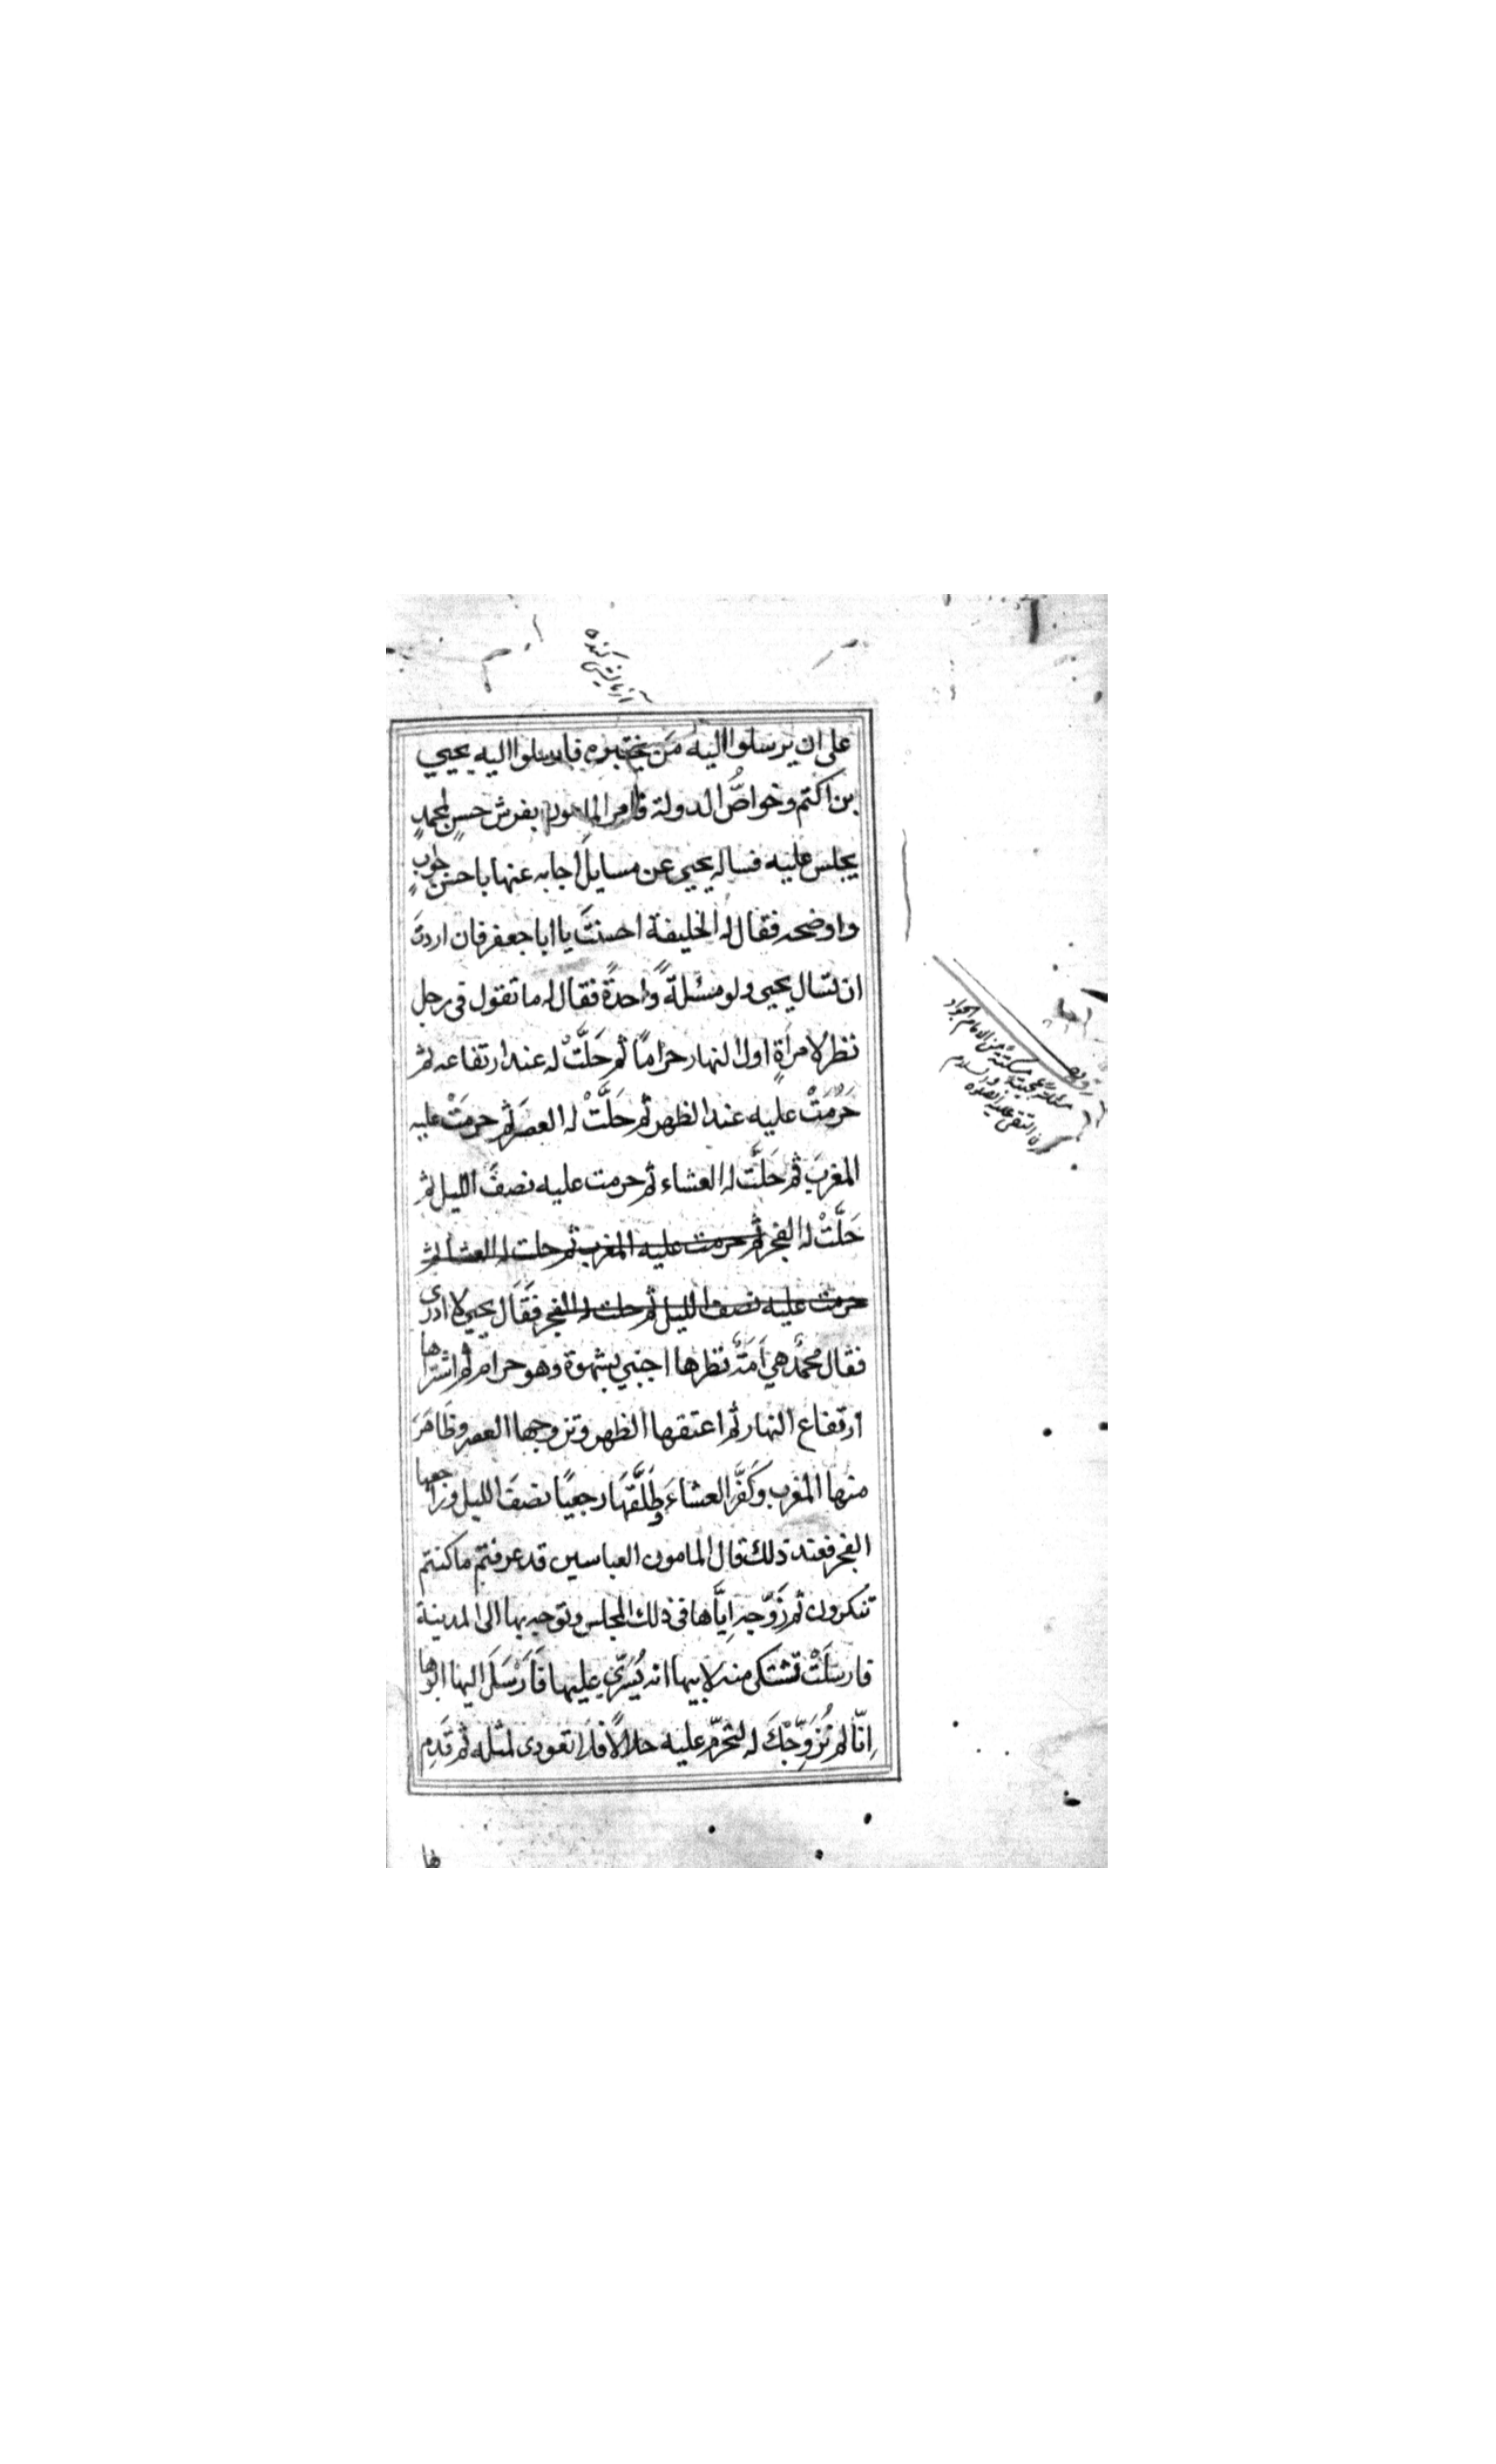 آزمایش کنده
على ان يرسلوا اليه مَن يختبره فارسلوا اليه يحيي
بن اكتم وخواصُّ الدولة فامر المامون بفرش حسنٍ لمحمدٍ
يجلس عليه فساله يحيى عن مسايلَ اجابه عنها باحسن جوابٍ
واوضحه فقال له الخليفة احسنتَ يا ابا جعفر فان اردتَ
ان تسال يحيى ولو مسئلةً واحدةً فقال له ما تقول فى رجل
نظر لامرأةٍ اول النهار حرامًا ثم حَلَّتْ له عند ارتفاعه ثم
حَرُمَتْ عليه عند الظهر ثم حَلَّتْ له العصرَ ثم حرمَتْ عليه
المغربَ ثم حَلَّتْ له العشاء ثم حرمت عليه نصفَ الليل ثم
حَلَّتْ له الفجر ثم حرمت عليه المغرب ثم حلت له العشا ثم
حرمت عليه نصف الليل ثم حلت له الفجر فقال يحيي لا ادرى
فقال محمد هي اَمَةٌ نظرها اجنبي بشهوة وهو حرام ثم اشتراها
ارتفاع النهار ثم اعتقها الظهر وتزوجها العصر وظَاهَرَ
منها المغرب وكَفَّرَ العشاءَ وطَلَّقَهَا رجعيًا نصفَ الليل وراجعها
الفجر فعند ذلك قال المامون العباسين قد عرفتم ما كنتم
تنكرون ثم زَوَّجه اِيَّاها فى ذلك المجلس وتوجه بها الى المدينة
فارسلَتْ تشتكى منه لابيها انه يُسَرِّي عليها فَاَرْسَلَ اليها ابوها
اِنّا لم نُزَوِّجْكَ له لتحرّم عليه حلالًا فلا تعودى لمثله ثم قَدِم
من الامام الجواد
التقى عليه الصلوة والسلام